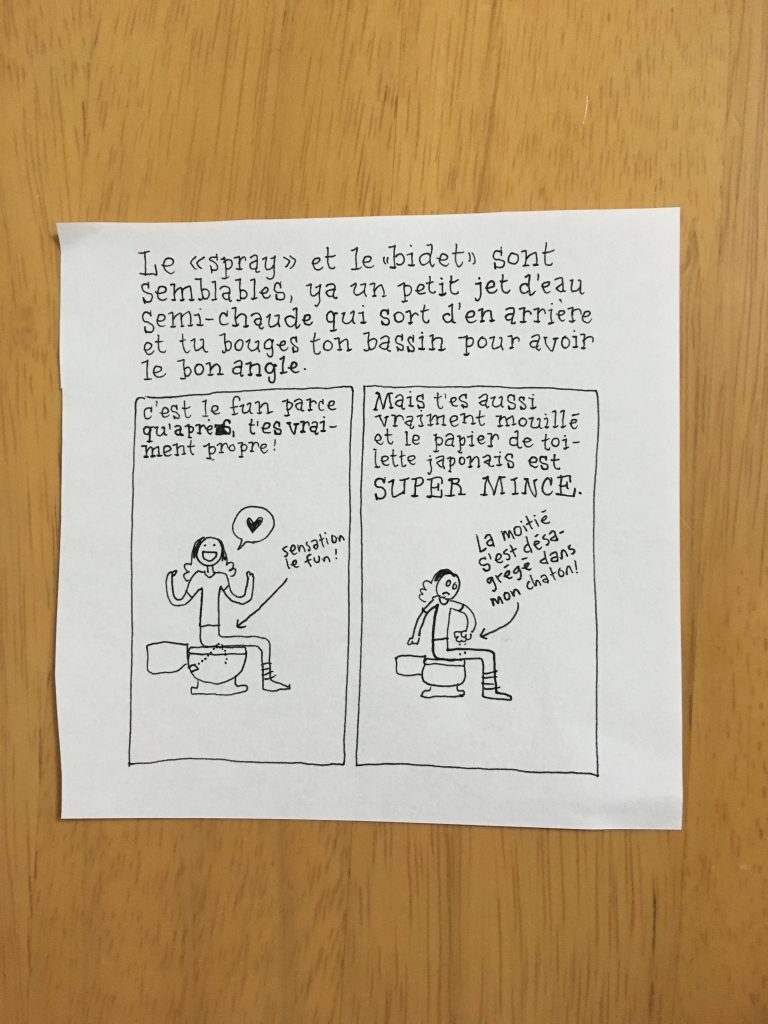 Le «spray» et le «bidet» sont
semblables, ya un petit jet d'eau
semi-chaude qui sort d'en arrière
et tu bouges ton bassin pour avoir
le bon angle.
c'est le fun parce
qu'après, t'es vrai-
ment propre!
sensation
le fun!
Mais t'es aussi
vraiment mouillé
et le papier de toi-
lette japonais est
SUPER MINCE.
La moitié
s'est désa-
grégé dans
mon chaton!